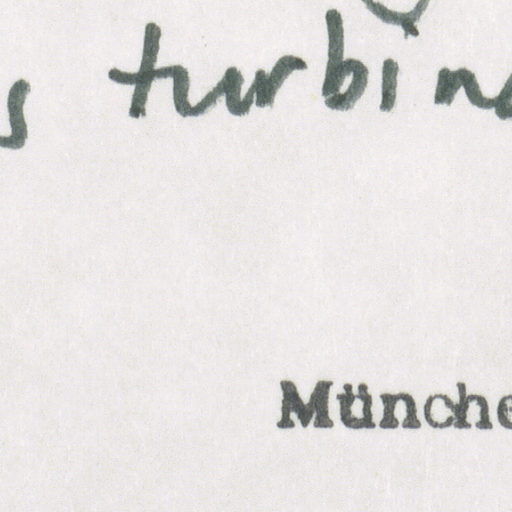 s turbina
Münche